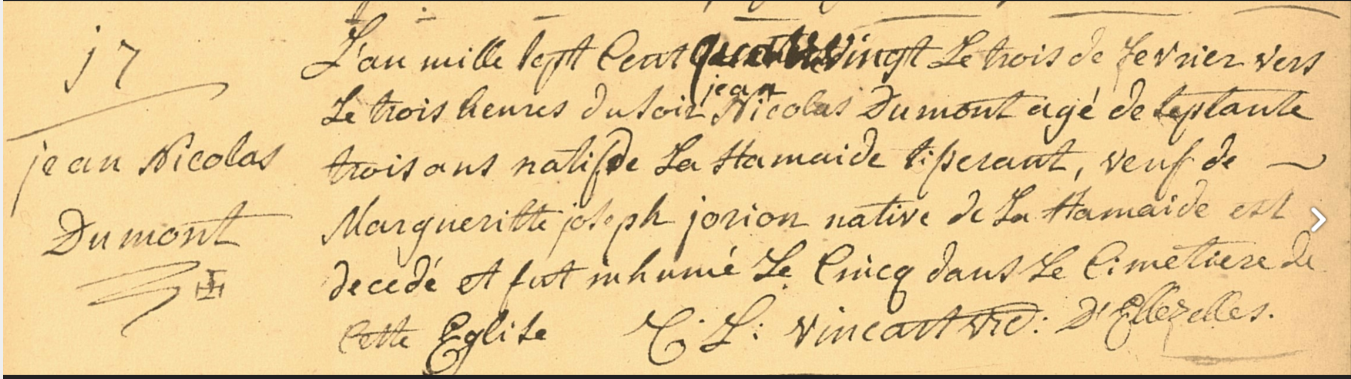 17
jean Nicolas
Dumont
L'an mille sept Cent quatre vingt Le trois de fevrier vers
Le trois heures du soir jean Nicolas Dumont agé de septante
trois ans natif de La Hamaide tiserant, veuf de
Margueritte joseph jorion native de La Hamaide est
decedé et fut inhumé Le Cincq dans Le Cimetiere de
cette Eglise C. L: Vincart vic: D'Ellezelles.